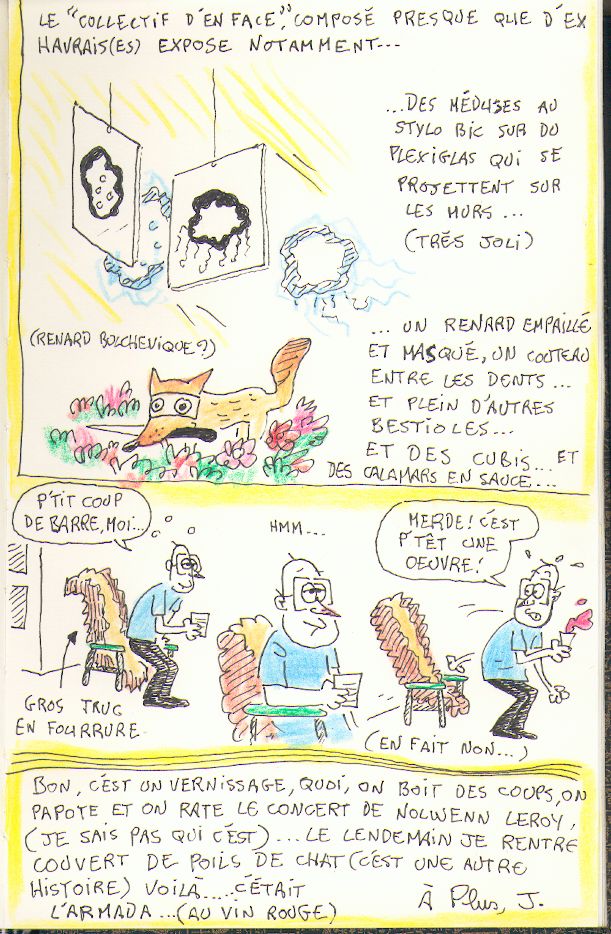 LE "COLLECTIF D'EN FACE", COMPOSÉ PRESQUE QUE D'EX
HAVRAIS(ES) EXPOSE NOTAMMENT...
...DES MÉDUSES AU
STYLO BIC SUR DU
PLEXIGLAS QUI SE
PROJETTENT SUR
LES MURS...
(TRÉS JOLI)
(RENARD BOLCHEVIQUE?)
... UN RENARD EMPAILLÉ
ET MASQUÉ, UN COUTEAU
ENTRE LES DENTS...
ET PLEIN D'AUTRES
BESTIOLES...
ET DES CUBIS... ET
DES CALAMARS EN SAUCE....
P'TIT COUP
DE BARRE, MOI...
HMM...
MERDE! C'EST
P'TÊT UNE
OEUVRE!
GROS TRUC
EN FOURRURE
(EN FAIT NON...)
BON, C'EST UN VERNISSAGE, QUOI, ON BOIT DES COUPS, ON
PAPOTE ET ON RATE LE CONCERT DE NOLWENN LEROY,
(JE SAIS PAS QUI C'EST)... LE LENDEMAIN JE RENTRE
COUVERT DE POILS DE CHAT (C'EST UNE AUTRE
HISTOIRE) VOILÀ..... C'ÉTAIT
L'ARMADA...(AU VIN ROUGE)
À Plus, J.